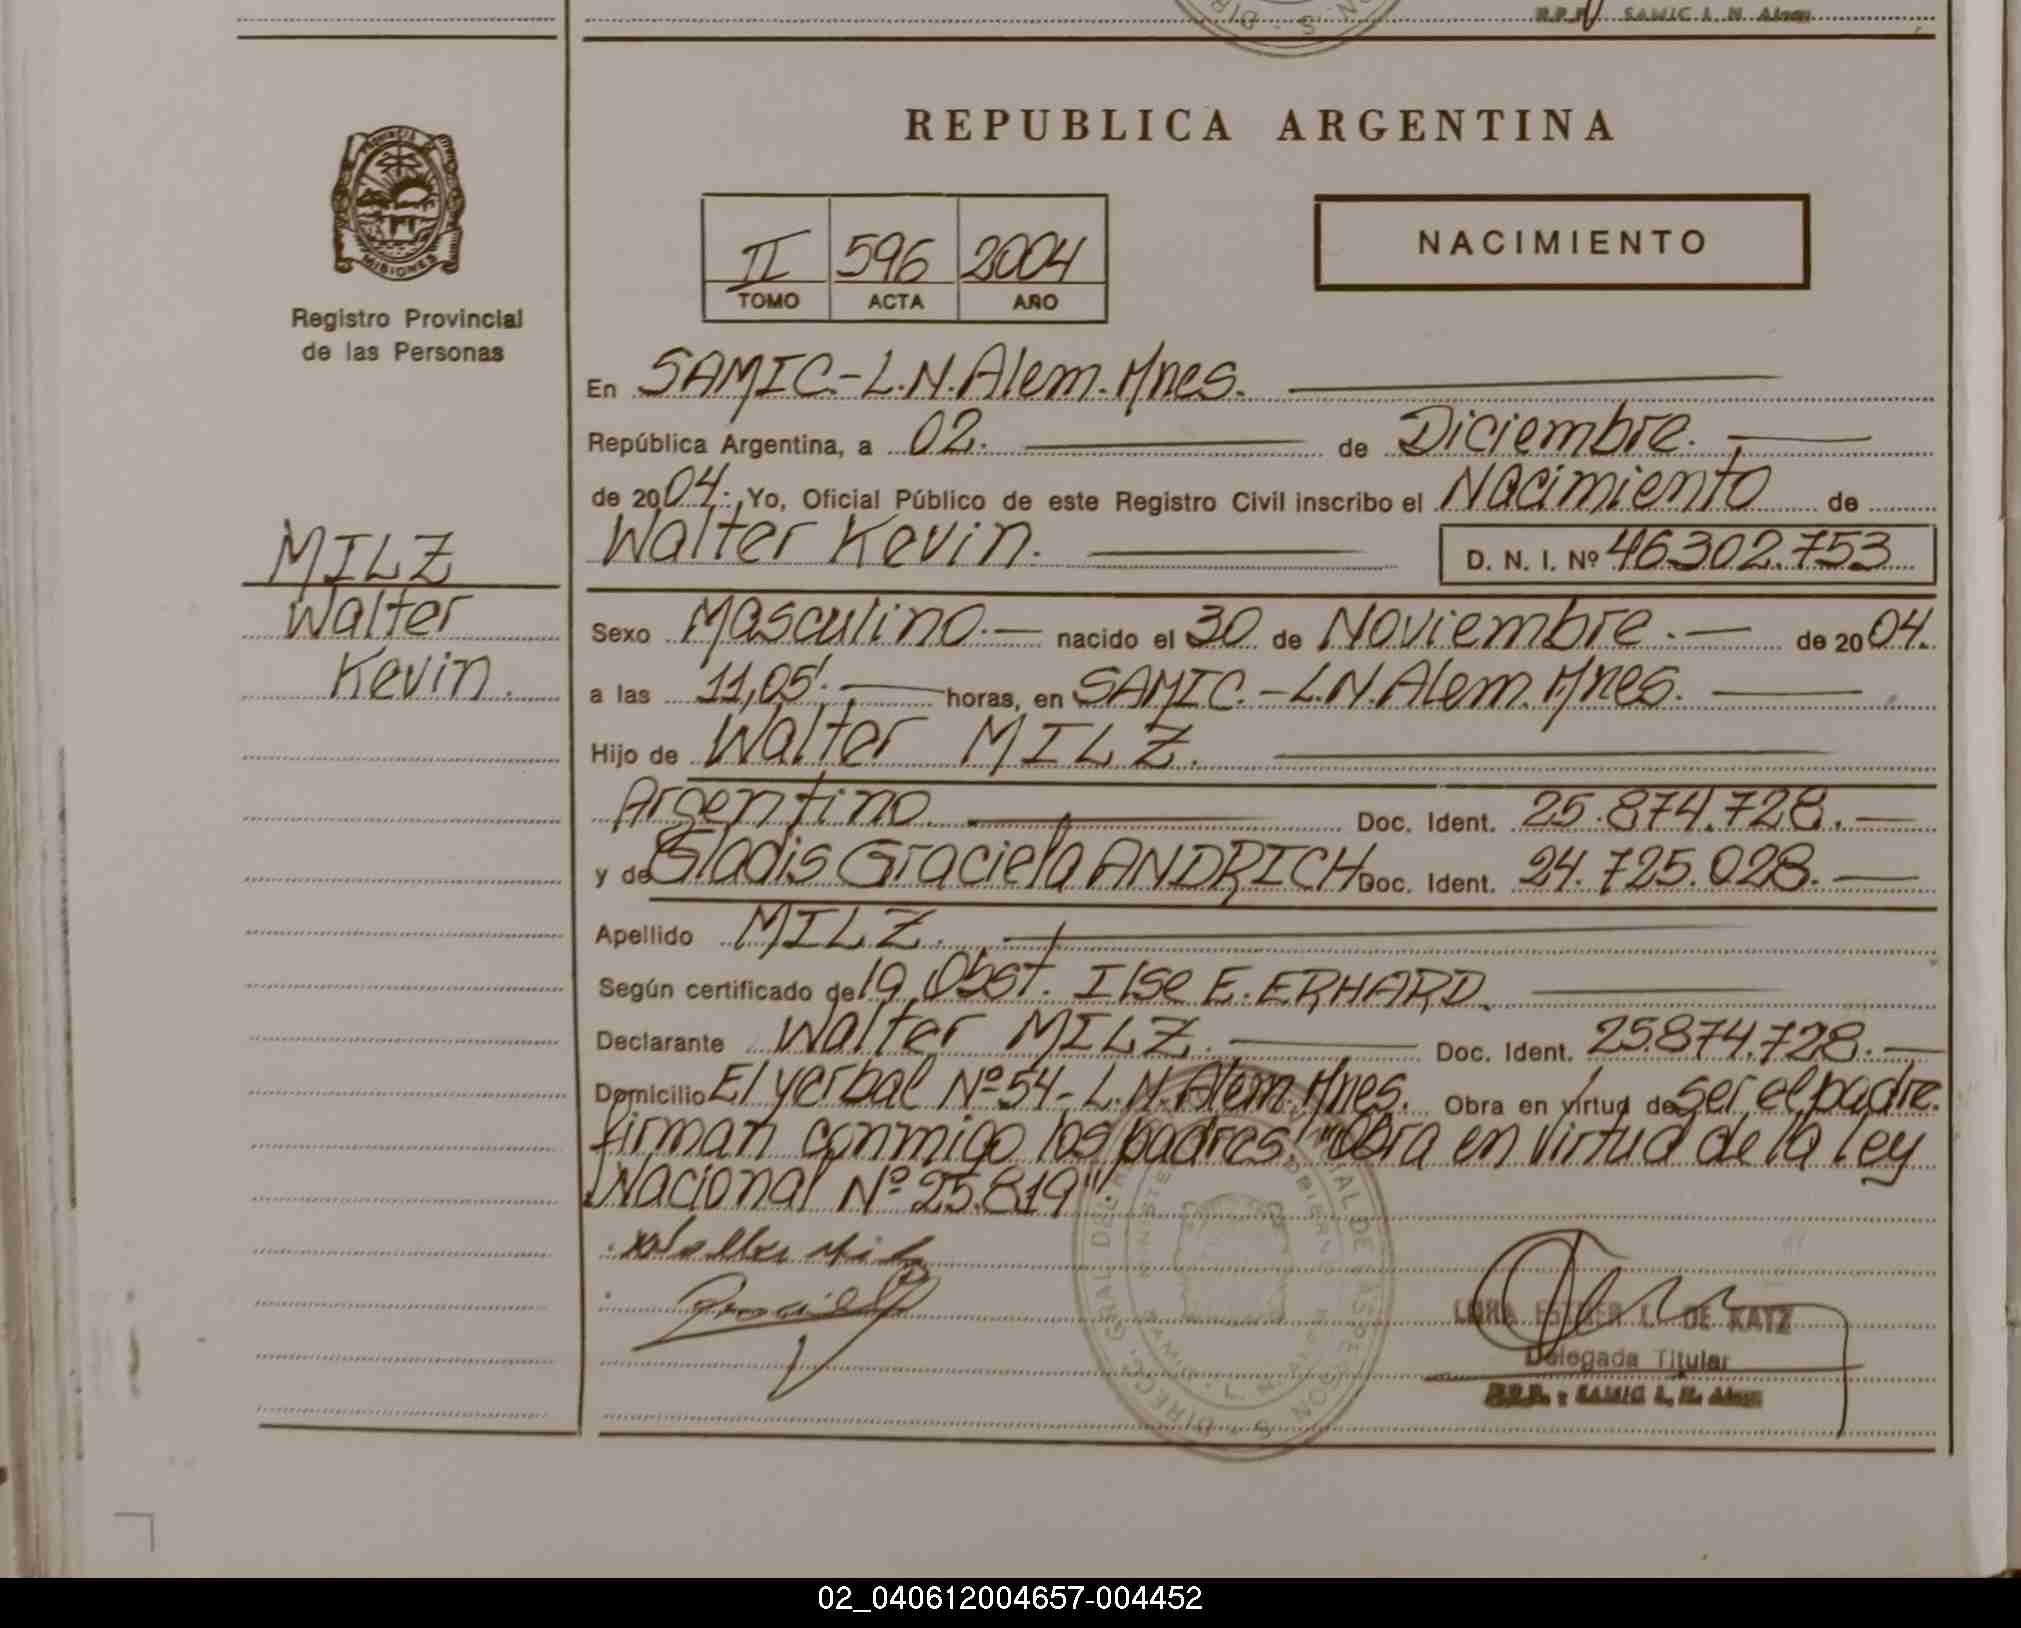 R.P.P. SAMIC L. N. Alem
REPUBLICA ARGENTINA
PROVINCIA
MISIONES
Registro Provincial
de las Personas
II 596 2004
TOMO ACTA AÑO
NACIMIENTO
En SAMIC.-L.N.Alem.Mnes.
República Argentina, a 02. de Diciembre.
de 2004. Yo, Oficial Público de este Registro Civil inscribo el Nacimiento de
Walter Kevin. D. N. I. Nº 46302.753
MILZ
Walter
Kevin.
Sexo Masculino.- nacido el 30 de Noviembre.- de 2004.
a las 11,05'.- horas, en SAMIC.-L.N.Alem.Mnes.
Hijo de Walter MILZ.
Argentino. Doc. Ident. 25.874.728.-
y de Gladis Graciela ANDRICH Doc. Ident. 24.725.028.-
Apellido MILZ.
Según certificado de la Obst. Ilse E. ERHARD.
Declarante Walter MILZ. Doc. Ident. 25874.728.-
Domicilio El yerbal Nº 54-L.N.Alem.Mnes. Obra en virtud de ser el padre.
firman conmigo los padres. "Obra en virtud de la Ley
Nacional Nº 25.819".
Walter Milz
LEIRA ESTHER L. DE KATZ
Delegada Titular
R.P.P. : SAMIC L. N. Alem
02_040612004657-004452